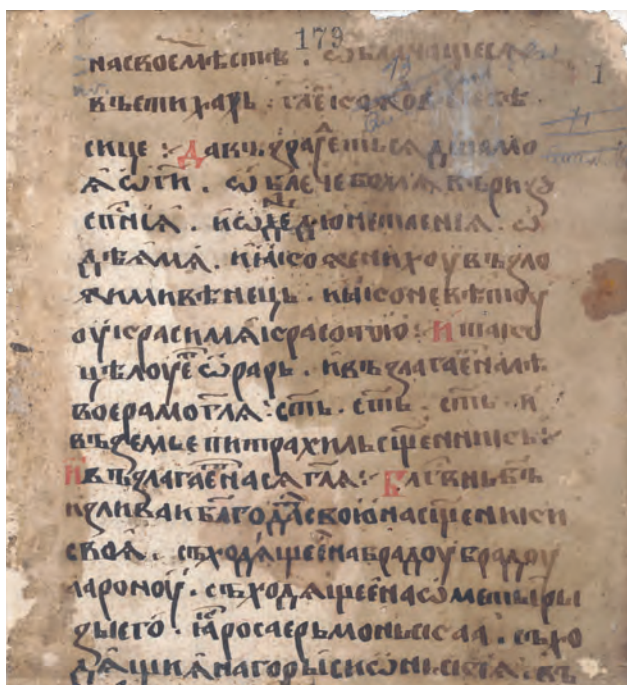 179
на своемь мѣстѣ · ѡблачащесѧ
въ стихарь · гл҃е іако
сице : Да възра҃етьсѧ дш҃а моа
ѧ ѡ г҃и · ѡблѣче бо мѧ въ ризꙋ
сп҃нїа · и ѡдеждою веселїа · ѡ
дѣа мѧ · ꙗко женихоу възло
жи ми вѣнець · и ꙗко невѣстоу
оукраси мѧ красотою : И тако
цѣлоуе҃ ѡрарь · и възлагае҃ на лѣ
вое рамо гл҃ѧ : ст҃ь · ст҃ь · ст҃ь · и
въземь епитрахиль сщ҃енникь :
И възлагае҃ на сѧ гл҃ѧ : Бл҃свнь б҃ь
изливаи благода҃ свою на сщ҃енники
своѧ · съходѧщее на брадоу брадоу
аароноу · съходѧщее на ѡметы ри
зы его · ꙗ҃ роса ерьмоньскаа · съхо
дѧщиѧ на горы сиѡнскїѧ · въ